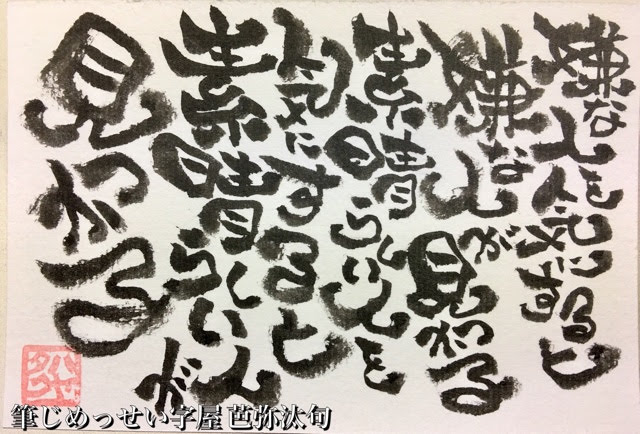 嫌な人を気にすると
嫌な人が見つかる
素晴らしい人を
気にすると
素晴らしい人が
見つかる
筆じめっせい字屋 芭弥汰句